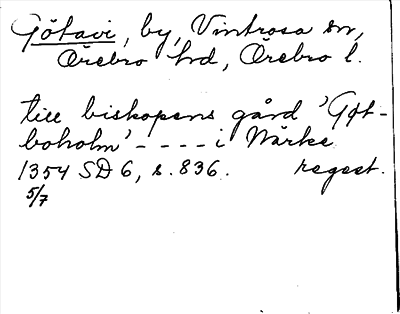 Götavi, by, Vintrosa sn,
Örebro hd, Örebro l.
till biskopens gård 'Göt-
boholm' - - - - i Närke
1354 SD 6, s. 836. regest.
5/7